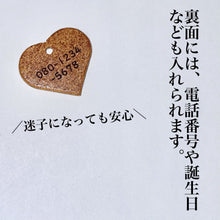 裏面には、電話番号や誕生日
なども入れられます。
080-1234
-5678
\迷子になっても安心/